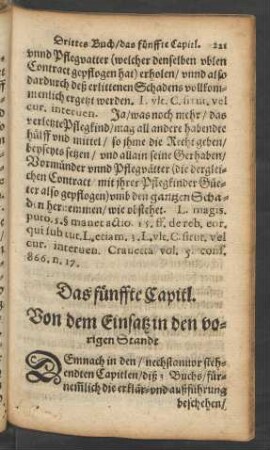 Drittes Buch/das fünffte Capitl. 221
vnnd Pflegvatter (welcher denselben vblen
Contract gepflogen hat) erholen/ vnnd also
dardurch deß erlittenen Schadens vollkom-
menlich ergetzt werden. L. vlt. C. si tut. vel
cur. interuen. Ja/was noch mehr/ das
verletzte Pflegkind/mag all andere habendte
hülff vnd mittel/ so ihme die Recht geben/
beyseyts setzen/ vnd allain seine Gerhaben/
Vormünder vnnd Pflegvätter (die derglei-
chen Contract/ mit jhrer Pflegkinder Güe-
ter also gepflogen) vmb den gantzen Scha-
den hernemmen/ wie obstehet. L. magis.
puto. 15. ff. de reb. eor.
qui sub tut. L. etiam. 3. L. vlt. C. si tut. vel
cur. interuen. Crauetta vol. 5. cons.
866. n. 17.
Das fünffte Capitl.
Von dem Einsatz in den vo-
rigen Standt
DEmnach in den/ nechst
endten Capitlen/ diß 3. Buchs/ für-
nemlich die erklär- vnd außführung
beschehen/